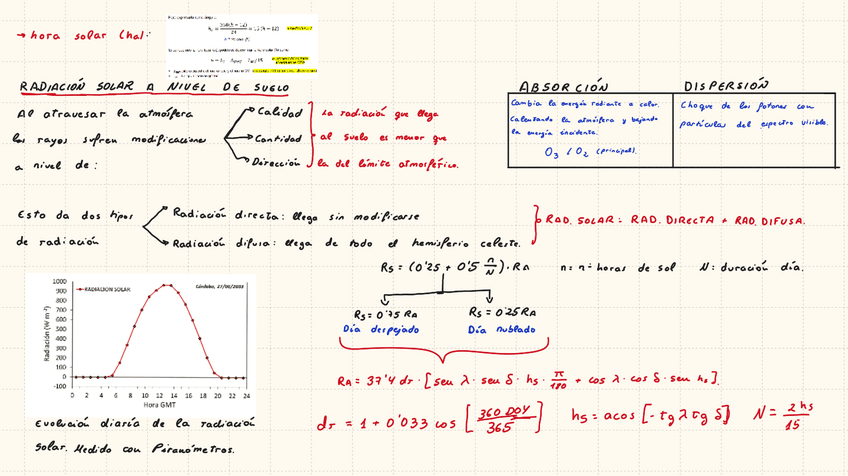 → hora solar (ha):
RADIACIÓN SOLAR A NIVEL DE SUELO
Al atravesar la atmósfera
los rayos sufren modificaciones
a nivel de:
Calidad
Cantidad
Dirección
La radiación que llega
al suelo es menor que
la del límite atmosférico.
ABSORCIÓN
DISPERSIÓN
Cambia la energía radiante a calor.
Calentando la atmósfera y bajando
la energía incidente.
O3 / O2 (principal).
Choque de los fotones con
partículas del espectro visible.
Esto da dos tipos
de radiación
Radiación directa: llega sin modificarse
Radiación difusa: llega de todo el hemisferio celeste.
RAD. SOLAR = RAD. DIRECTA + RAD. DIFUSA.
Rs = (0'25 + 0'5 n/N) · RA
n = nº horas de sol
N: duración día.
Rs = 0'75 RA
Día despejado
Rs = 0'25 RA
Día nublado
RADIACION SOLAR
Radiación (W m⁻²)
1000
900
800
700
600
500
400
300
200
100
0
-100
0 2 4 6 8 10 12 14 16 18 20 22 24
Hora GMT
Evolución diaria de la radiación
solar. Medido con Piranómetros.
RA = 37'4 dr · [sen λ · sen δ · hs · π/180 + cos λ · cos δ · sen hs].
dr = 1 + 0'033 cos [360 DOY / 365]
hs = acos [-tg λ tg δ]
N = 2 hs / 15